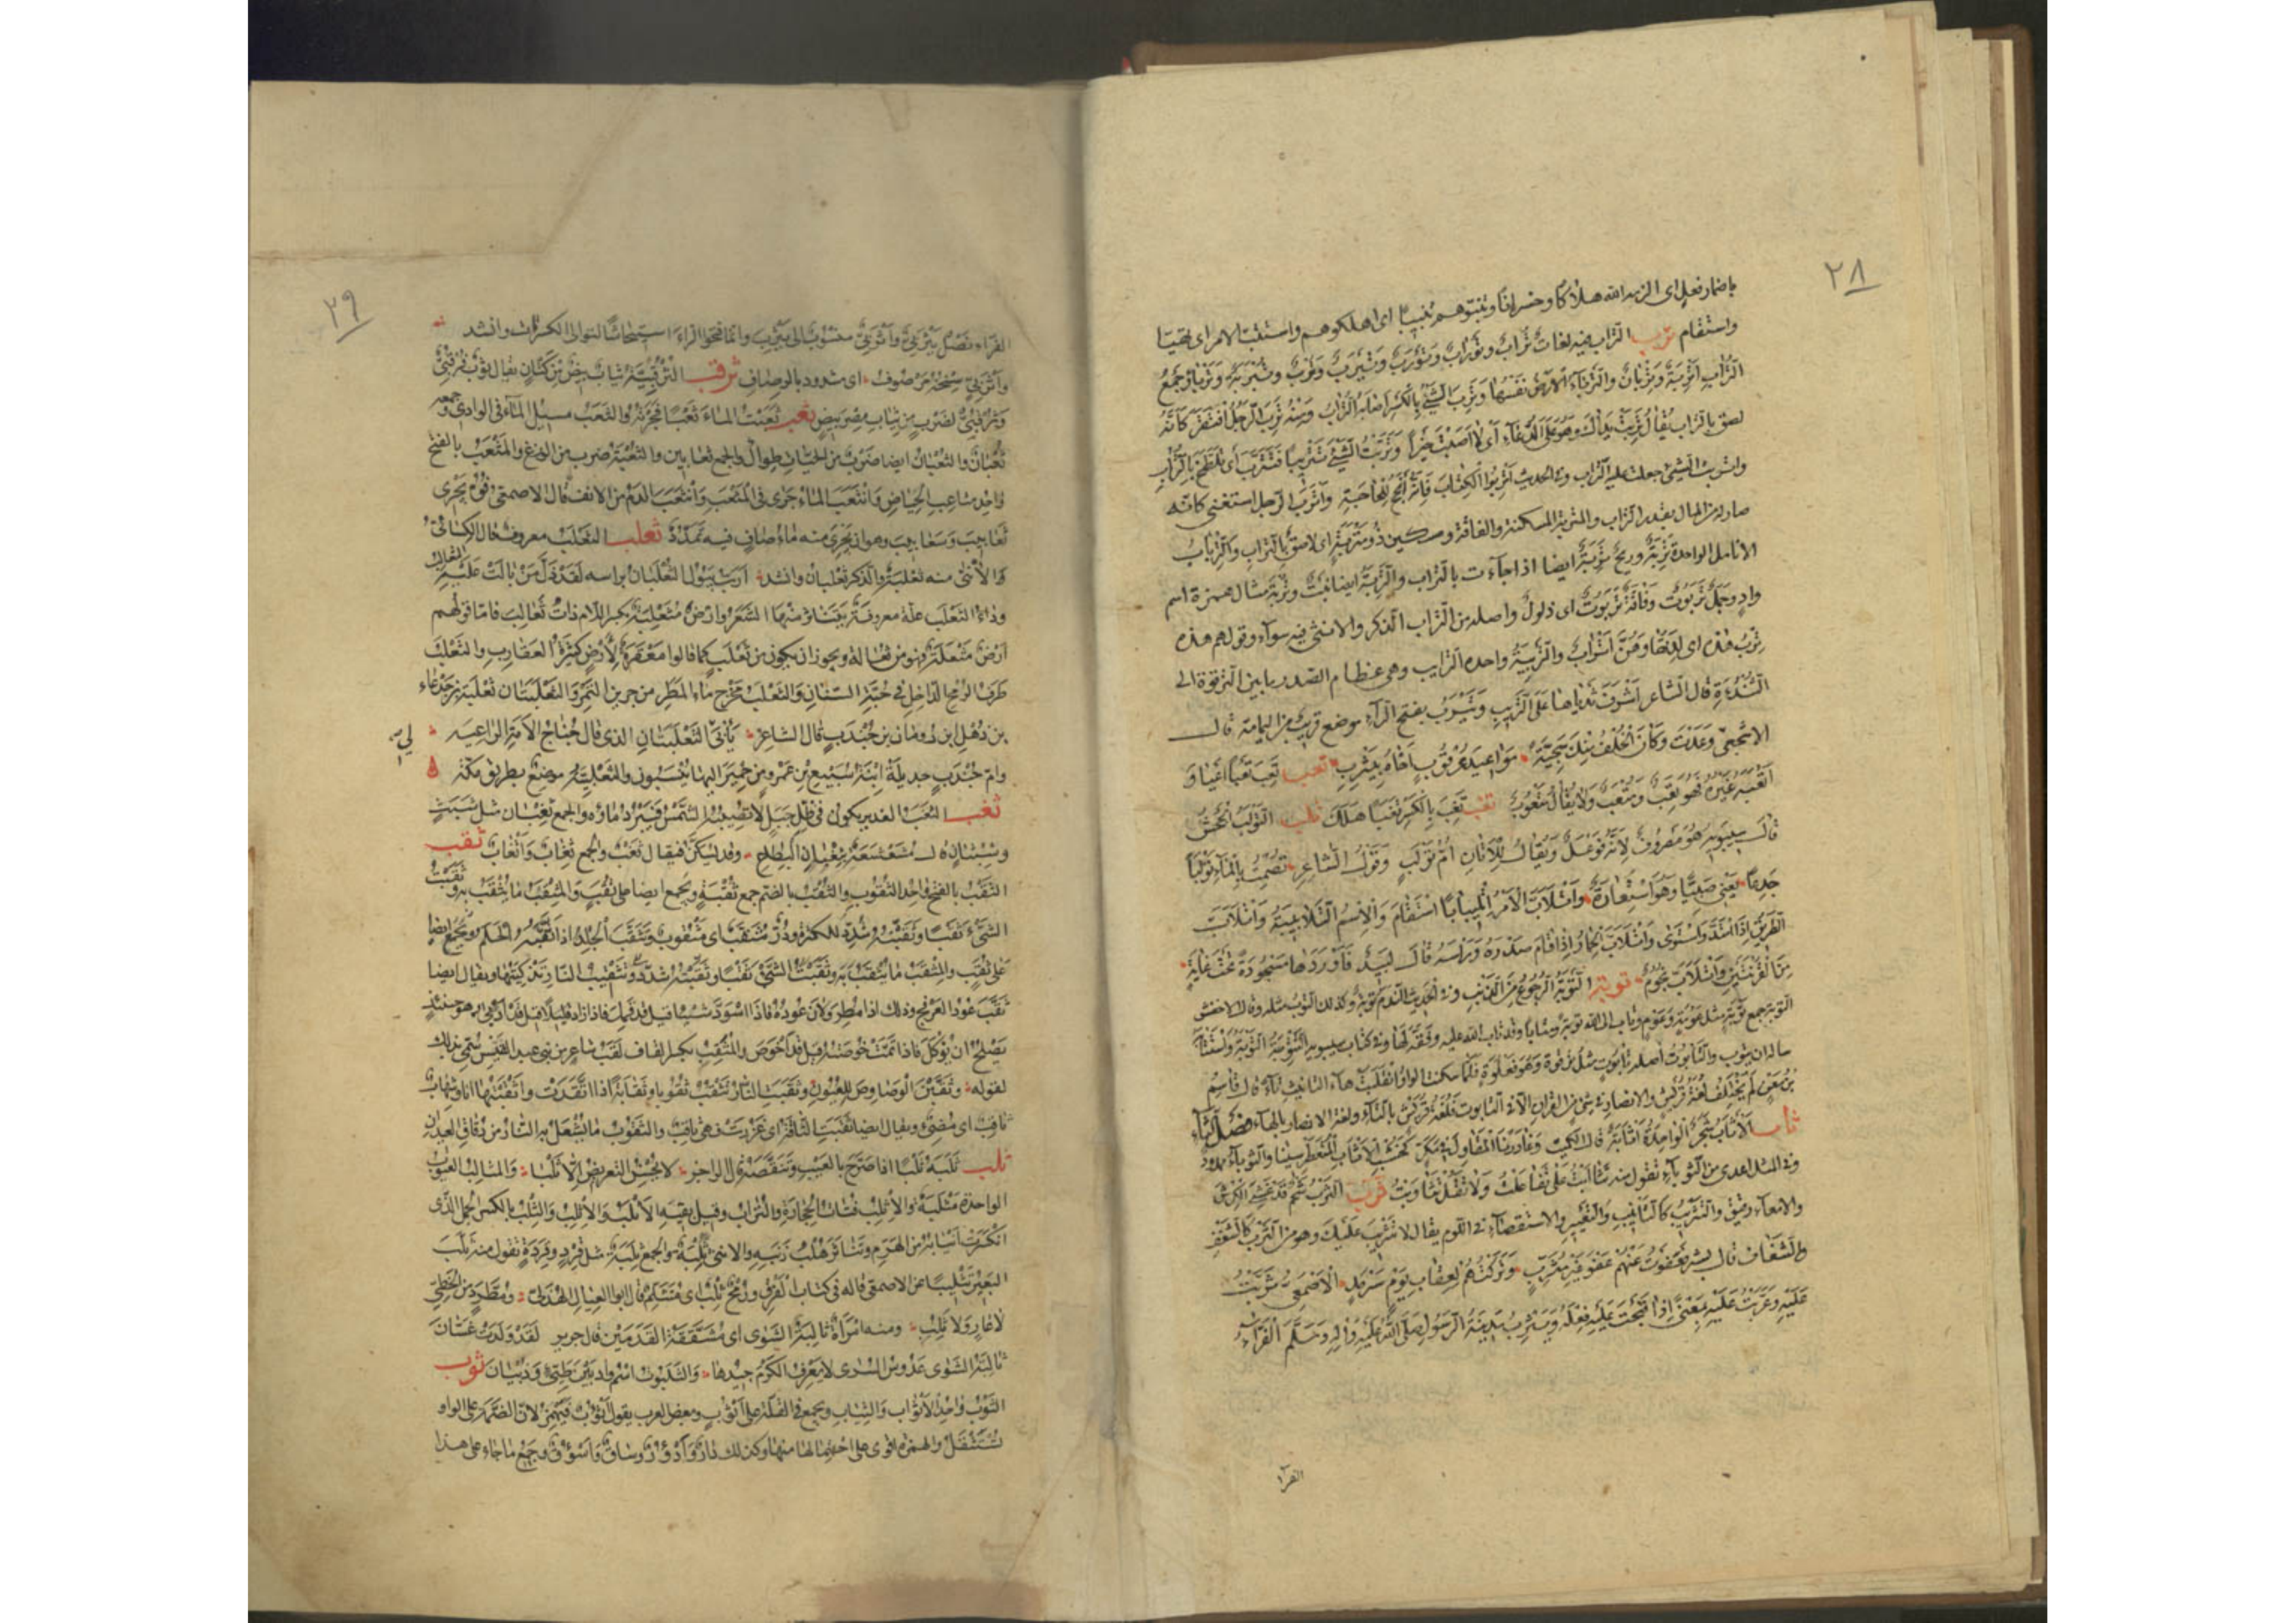 ٢٨
باضمار فعل اى الزمه الله هلاكا وخسرانا وتببوهم تتبيبا اى اهلكوهم واستتب الامر اى تهيّا
واستقام ترب التراب فيه لغات تراب وتوراب وتورب وتيرب وترب وتربة وترباء وجمع
التراب اتربة وتربان والترباء الارض نفسها وترب الشئ بالكسر اصابه التراب ومنه ترب الرجل افتقر كانه
لصق بالتراب يقال تربت يداك وهو على الدعاء اى لا اصبت خيرا وتربت الشئ تتريبا فتترب اى تلطخ بالتراب
واتربت الشئ جعلت عليه التراب وفى الحديث اتربوا الكتاب فانه انجح للحاجة واترب الرجل استغنى كانه
صار له من المال بقدر التراب والمتربة المسكنة والفاقة ومسكين ذو متربة اى لاصق بالتراب والتربات
الانامل الواحدة تربة وريح تربة ايضا اذا جاءت بالتراب والتربة ايضا نبت وتربة مثال همزة اسم
واد وجمل تربوت وناقة تربوت اى ذلول واصله من التراب الذكر والانثى فيه سواء وقولهم هذه
ترب هذه اى لدتها وهن اتراب والتريبة واحدة الترايب وهى عظام الصدر ما بين الترقوة الى
الثندوة قال الشاعر اشرف ثدياها على التريب ويترب بفتح الراء موضع قريب من اليمامة قال
الاشجعى وعدت وكان الخلف منك سجية مواعيد عرقوب اخاه بيترب تعب تعب تعبا اعيا و
اتعبه غيره فهو تعب ومتعب ولا يقال متعوب تغب تغب بالكسر تغبا هلك تلب التولب الجحش
قال سيبويه هو مصروف لانه فوعل ويقال للاتان ام تولب وقول الشاعر تصمت بالماء تولبا
جدعا يعنى صبيا وهو استعارة واتلأب الامر اتليبابا استقام والاسم التلابيبة واتلأب
الطريق اذا امتد واستوى واتلأب الحمار اذا اقام صدره وراسه قال لبيد فاوردها مسجورة تحت غابة
من القرنتين واتلأب يحوم توبة التوبة الرجوع من الذنب وفى الحديث الندم توبة وكذلك التوب مثله وقال الاخفش
التوب جمع توبة مثل عومة وعوم وتاب الى الله توبة ومتابا وقد تاب الله عليه وفقه لها وفى كتاب سيبويه التتوبة التوبة واستتابه
ساله ان يتوب والتابوت اصله تابوة مثل ترقوة وهو فعلوة فلما سكنت الواو انقلبت هاء التانيث تاء قال قاسم
بن معن لم تختلف لغة قريش والانصار فى شئ من القران الا فى التابوت فلغة قريش بالتاء ولغة الانصار بالهاء فصل الثاء
ثاب الاثاب شجر الواحدة اثابة قال الكميت وغادرنا المقاول فى مكر كخشب الاثاب المتغطرسينا والثوباء ممدود
وفى المثل اعدى من الثوباء تقول منه تثاءبت على تفاعلت ولا تقل تثاوبت ثرب الثرب شحم قد غشى الكرش
والامعاء رقيق والتثريب كالتانيب والتعيير والاستقصاء فى اللوم يقال لا تثريب عليك وهو من الثرب كالشغف
والشغاف قال بشر فعفوت عنهم عفو غير مثرب وتركتهم لعقاب يوم سرمد الاصمعى ثربت
عليه وعربت عليه بمعنى اذا قبحت عليه فعله ويثرب مدينة الرسول صلى الله عليه واله وسلم الفراء
الفرا
٢٩
الفراء نصل يثربى واثربى منسوب الى يثرب وانما فتحوا الراء استيحاشا لتوالى الكسرات وانشد
واثربى سنخه مرصوف اى مشدود بالرصاف ثرقب الثرقبية ثياب بيض من كتان يقال ثوب ثرقبى
وفرقبى لضرب من ثياب مصر بيض ثعب ثعبت الماء ثعبا فجرته والثعب مسيل الماء فى الوادى وجمعه
ثعبان والثعبان ايضا ضرب من الحيات طوال والجمع ثعابين والثعبة ضرب من الوزغ والمثعب بالفتح
واحد مثاعب الحياض وانثعب الماء جرى فى المثعب وانثعب الدم من الانف قال الاصمعى فوه يجرى
ثعابيب وسعابيب وهو ان يجرى منه ماء صاف فيه تمدد ثعلب الثعلب معروف قال الكسائى
والانثى منه ثعلبة والذكر ثعلبان وانشد ارب يبول الثعلبان براسه لقد ذل من بالت عليه الثعالب
وداء الثعلب علة معروفة يتناثر منها الشعر وارض مثعلبة بكسر اللام ذات ثعالب فاما قولهم
ارض مثعلة فهو من ثعالة ويجوز ان يكون من ثعلب كما قالوا معقرة لارض كثيرة العقارب والثعلب
طرف الرمح الداخل فى جبة السنان والثعلب مخرج ماء المطر من جرين التمر والثعلبتان ثعلبة بن جدعاء
بن ذهل ابن رومان بن جندب قال الشاعر يابى لى الثعلبتان الذى قال خباج الامة الراعيه
وام جندب جديلة ابنة سبيع بن عمرو من حمير اليها ينسبون والثعلبية موضع بطريق مكة
ثغب الثغب الغدير يكون فى ظل جبل لا تصيبه الشمس فيبرد ماؤه والجمع ثغبان مثل شبث
وشبثان قال مشعشعة بثغبان البطاح وقد يسكن فيقال ثغب والجمع ثغاب واثغاب ثقب
الثقب بالفتح واحد الثقوب والثقب بالضم جمع ثقبة ويجمع ايضا على ثقب والمثقب ما يثقب به وثقبت
الشئ ثقبا وثقبته شدد للكثرة ودر مثقب اى مثقوب وتثقب الجلد اذا ثقبه الحلم ويجمع ايضا
على ثقب والمثقب ما يثقب به وثقبت الشئ ثقبا وثقبته شدد وتثقيب النار تذكيتها ويقال ايضا
ثقب عود العرفج وذلك اذا مطر ولان عوده فاذا اسود شيئا قيل قد قمل فاذا زاد قليلا قيل قد ادبى وهو حينئذ
يصلح ان يؤكل فاذا تمت خوصته قيل قد اخوص والمثقب بكسر القاف لقب شاعر من بنى عبد القيس سمى بذلك
لقوله وثقبن الوصاوص للعيون وثقبت النار تثقب ثقوبا وثقابة اذا اتقدت واثقبتها انا وشهاب
ثاقب اى مضئ ويقال ايضا ثقبت الناقة اى غزرت فهى ثاقب والثقوب ما يشعل به النار من دقاق العيدان
ثلب ثلبه ثلبا اذا صرح بالعيب وتنقصه قال الراجز لا يحسن التعريض الا ثلبا والمثالب العيوب
الواحدة مثلبة والاثلب فتات الحجارة والتراب وفيه لغية الاثلب والاثلب والثلب بالكسر الجمل الذى
انكسرت انيابه من الهرم وتناثر هلب ذنبه والانثى ثلبة والجمع ثلبة مثل قرد وقردة تقول منه ثلب
البعير تثليبا عن الاصمعى قاله فى كتاب الفرق ورمح ثلب اى متثلم قال ابو العيال الهذلى ومطرد من الخطى
لا عار ولا ثلب ومنه امراة ثالبة الشوى اى متشققة القدمين قال جرير لقد ولدت غسان
ثالبة الشوى عدوس السرى لا يعرف الكرم جيدها والثلبوت اسم واد بين طئ وذبيان ثوب
الثوب واحد الاثواب والثياب ويجمع فى القلة على اثوب وبعض العرب يقول اثؤب فيهمز لان الضمة على الواو
تستثقل والهمزة اقوى على احتمالها منها وكذلك دار وادؤر وساق واسؤق وجميع ما جاء على هذا